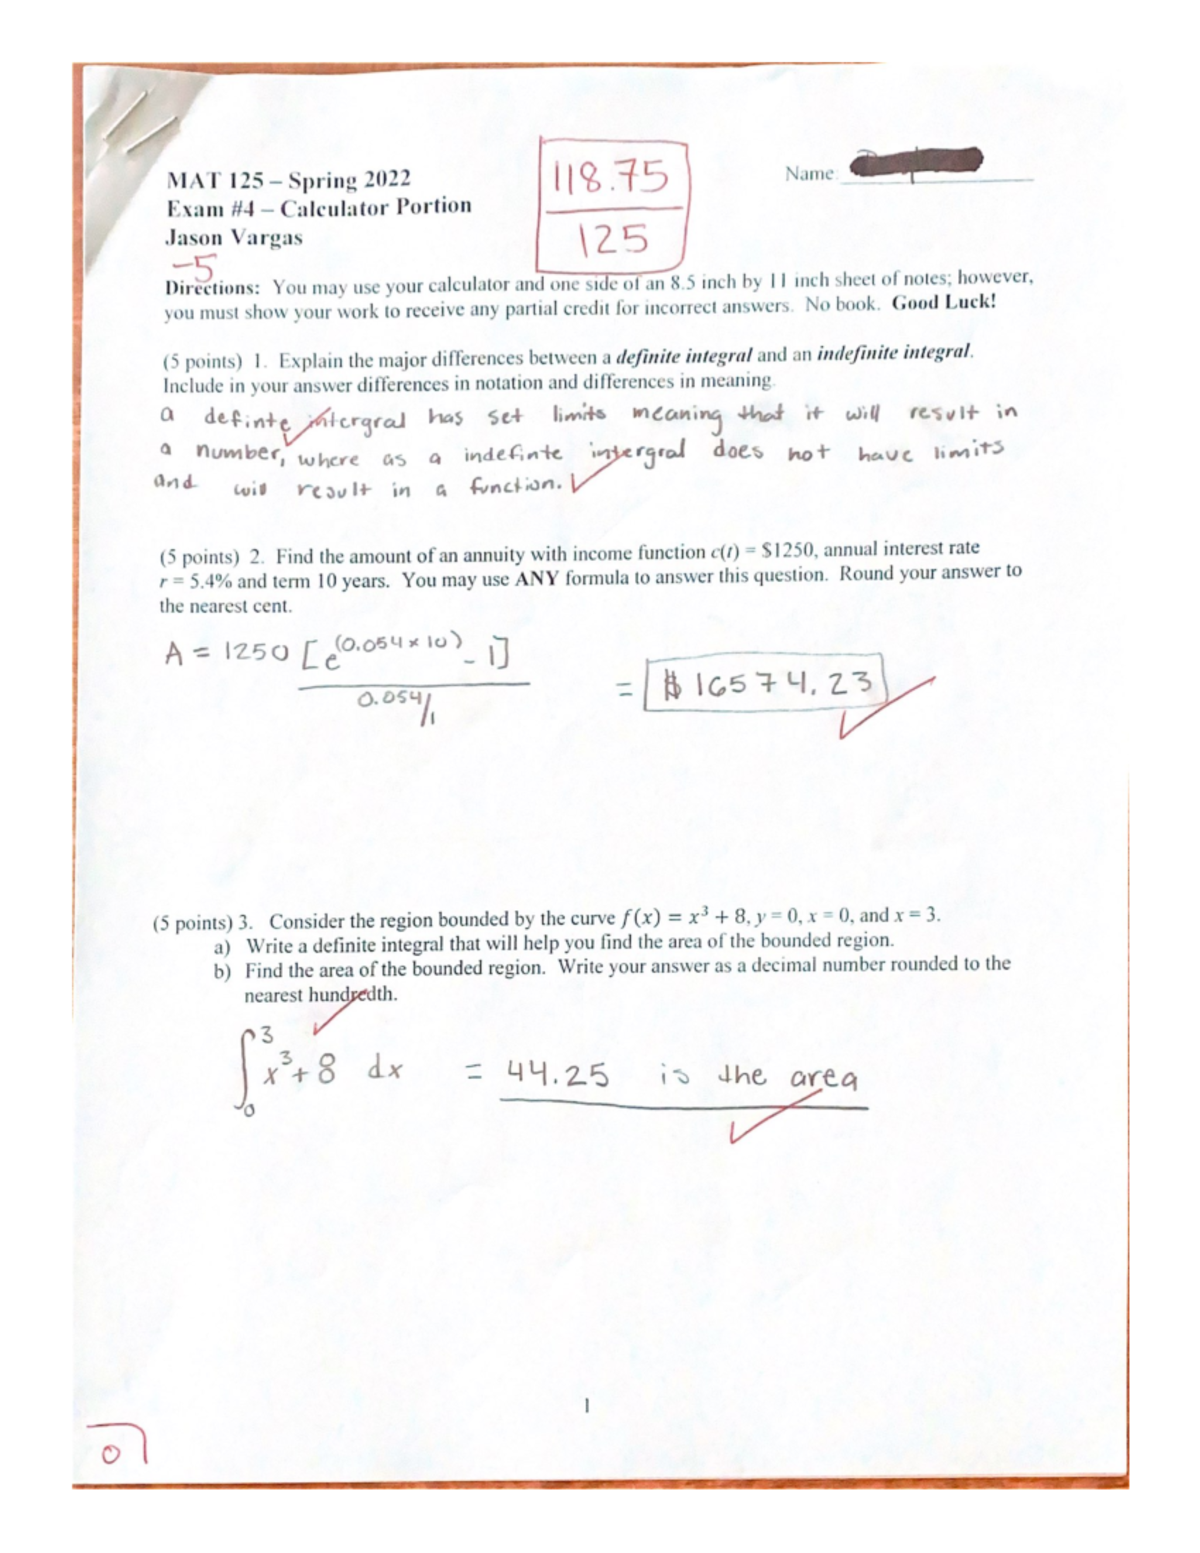 MAT 125 – Spring 2022
Exam #4 – Calculator Portion
Jason Vargas
118.75
125
Name:
-5
Directions: You may use your calculator and one side of an 8.5 inch by 11 inch sheet of notes; however,
you must show your work to receive any partial credit for incorrect answers. No book. Good Luck!
(5 points) 1. Explain the major differences between a definite integral and an indefinite integral.
Include in your answer differences in notation and differences in meaning.
a definte intergral has set limits meaning that it will result in
a number, where as a indefinte intergral does not have limits
and will result in a function.
(5 points) 2. Find the amount of an annuity with income function c(t) = $1250, annual interest rate
r = 5.4% and term 10 years. You may use ANY formula to answer this question. Round your answer to
the nearest cent.
A = 1250 [e^(0.054×10) - 1]
0.054/1
= $16574.23
(5 points) 3. Consider the region bounded by the curve f(x) = x³ + 8, y = 0, x = 0, and x = 3.
a) Write a definite integral that will help you find the area of the bounded region.
b) Find the area of the bounded region. Write your answer as a decimal number rounded to the
nearest hundredth.
∫₀³ x³+8 dx = 44.25 is the area
1
0